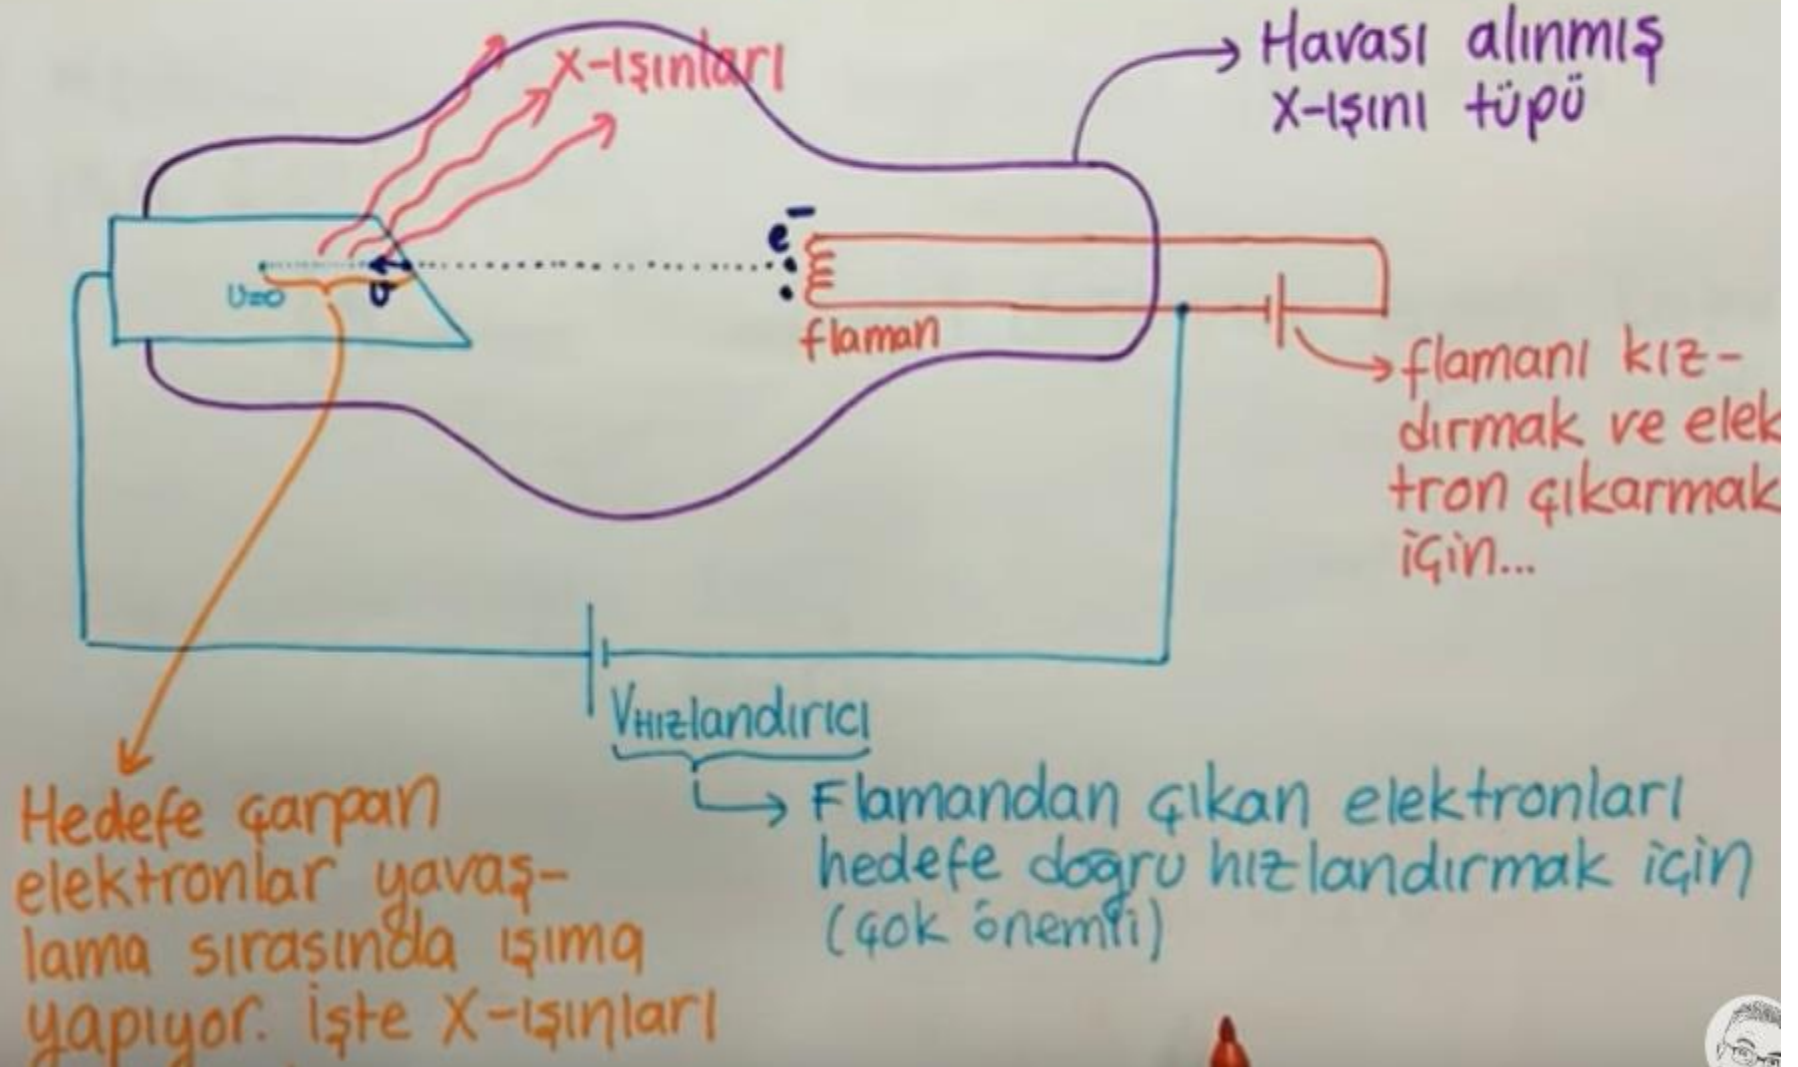 X-ışınları
Havası alınmış
X-ışını tüpü
e⁻
υ=0
υ
flaman
flamanı kız-
dırmak ve elek
tron çıkarmak
için...
VHızlandırıcı
Flamandan çıkan elektronları
hedefe doğru hızlandırmak için
(çok önemli)
Hedefe çarpan
elektronlar yavaş-
lama sırasında ışıma
yapıyor. İşte X-ışınları